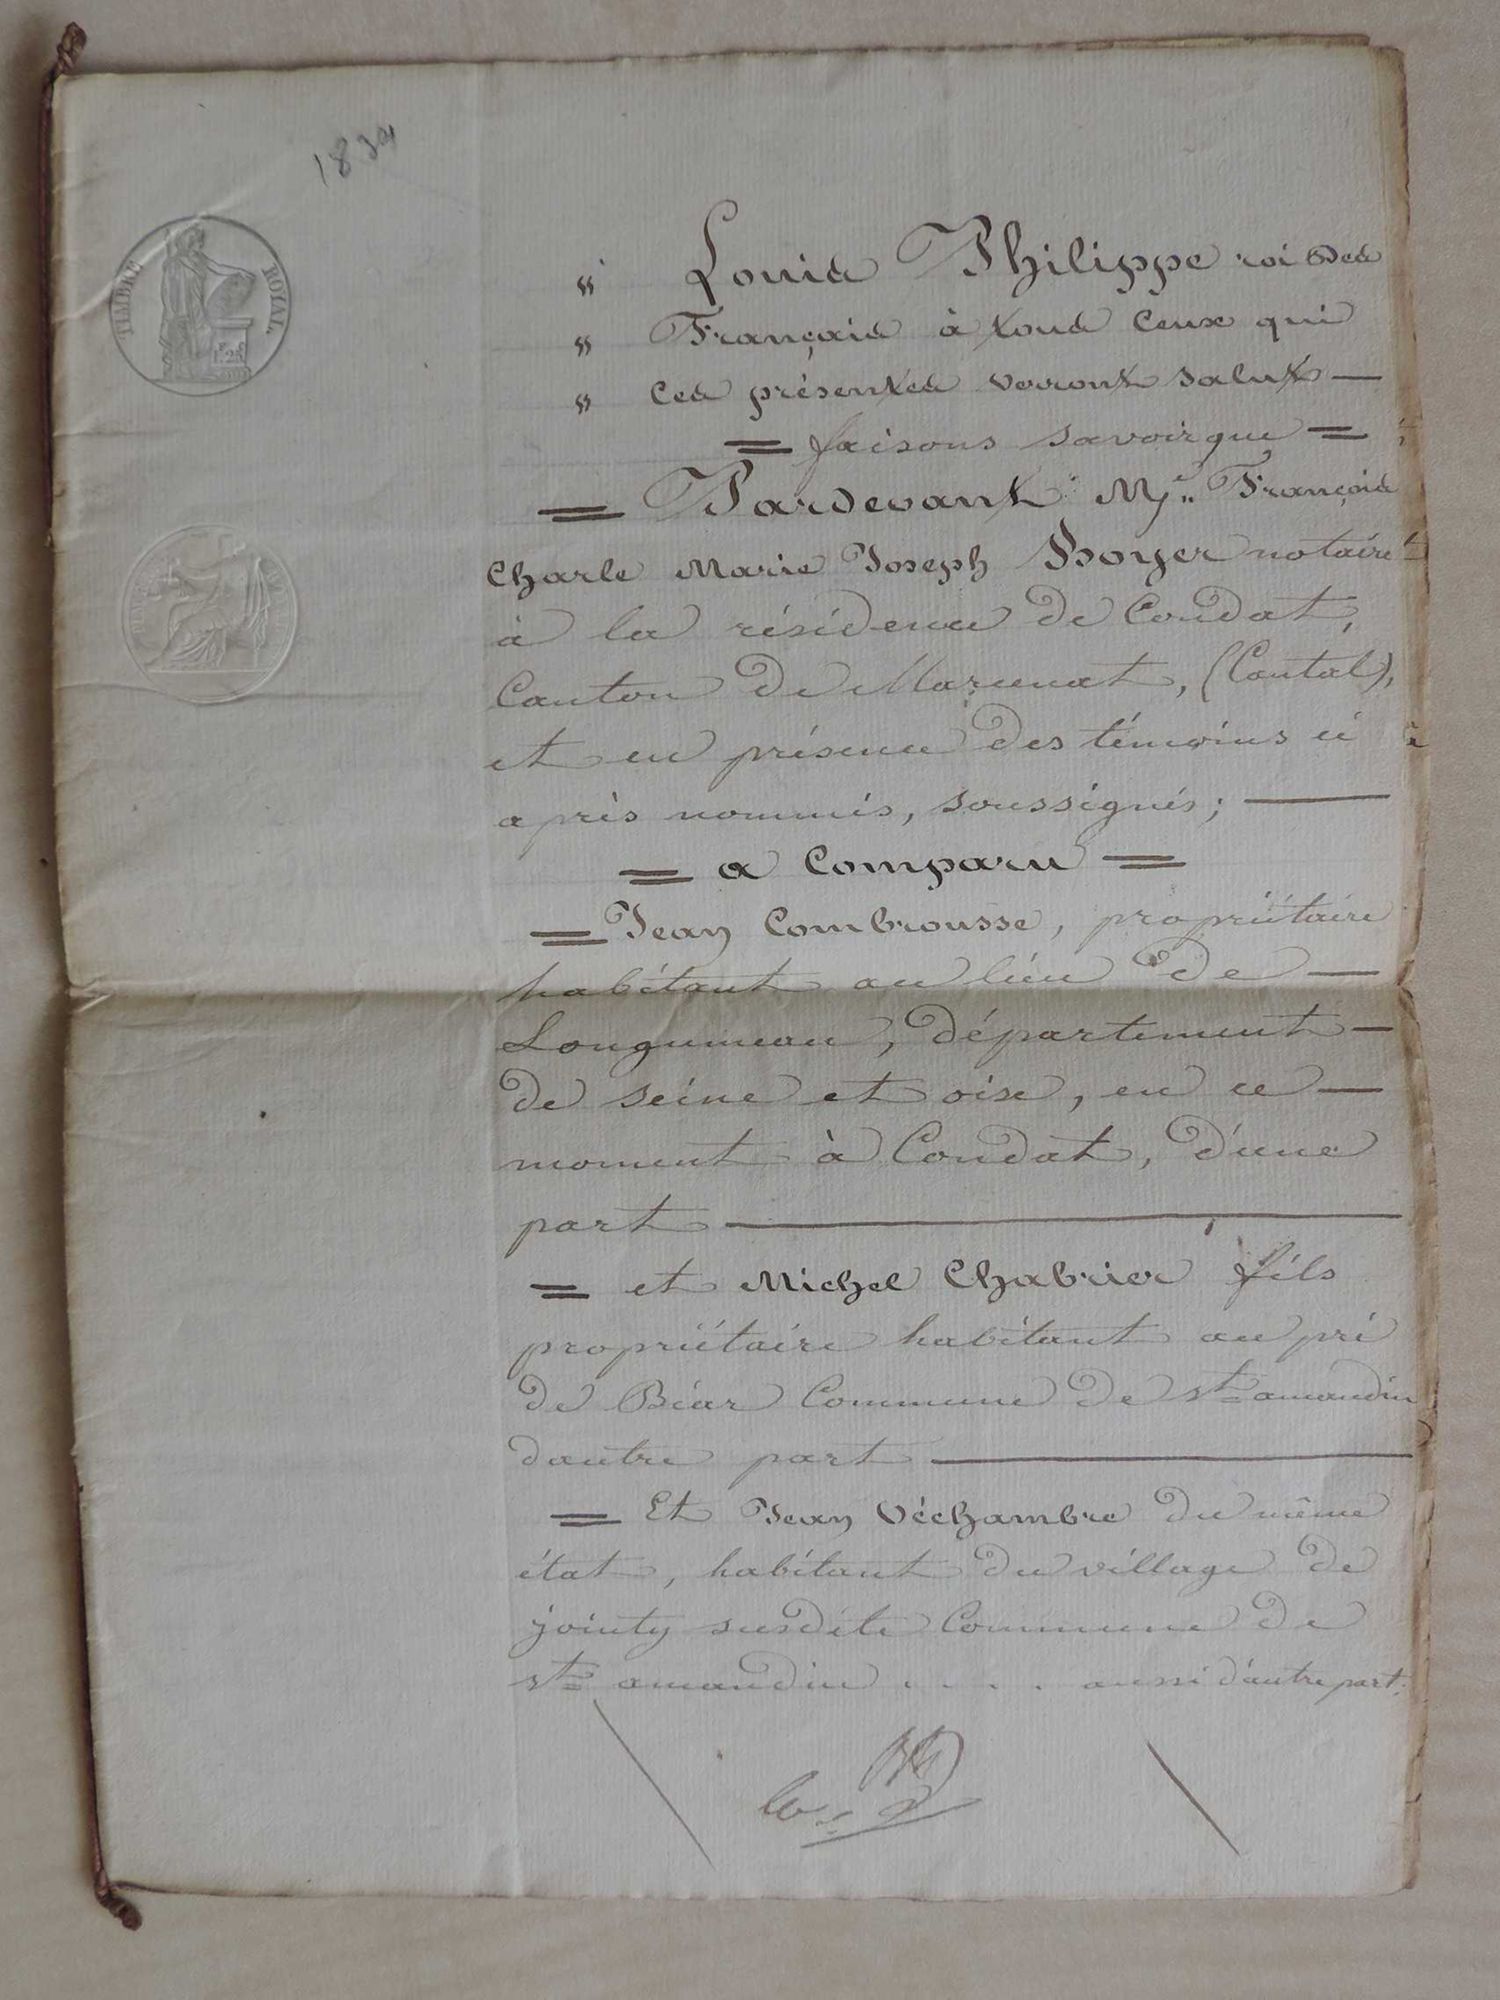 1834
TIMBRE ROYAL.
1F.25
" Louis Philippe roi des
" Français à tous ceux qui
" ces présentes verront salut —
= faisons savoir que =
= Pardevant Me.. François
Charle Marie Joseph Boyer notaire
à la résidence de Condat,
Canton de Marcenat, (Cantal),
et en présence des témoins ci
après nommés, soussignés; —
= a Comparu =
= Jean Combrousse, propriétaire
habitant au lieu de —
Longumeau, département —
de seine et oise, en ce —
moment à Condat, d'une
part —
= et Michel Chabrier fils
propriétaire habitant au pré
de Béar Commune de st= amandin
dautre part —
= Et Jean Véchambre du même
état, habitant du village de
jointy susdite Commune de
st= amandin . . . . aussi d'autre part.